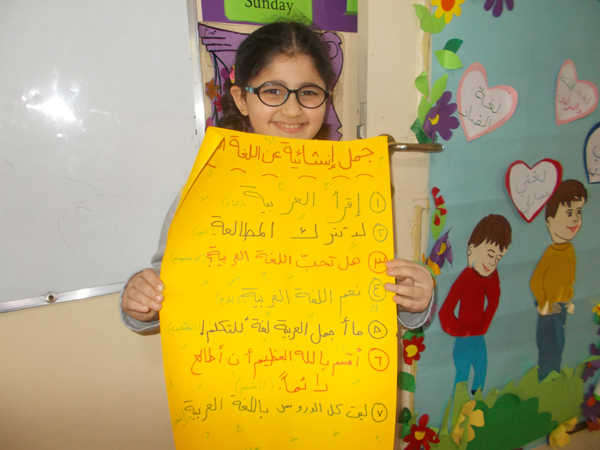 Sunday
جمل إنشائية عن اللغة
١ إقرأ العربية
٢ لا تترك المطالعة
٣ هل تحبّ اللغة العربية
٤ نعم اللغة العربية
٥ ما أجمل العربية لغة للتكلم!
٦ أقسم بالله العظيم أن أطالع
دائماً. (القسم)
٧ ليت كل الدروس باللغة العربية
لغة
الضاد
لغتي